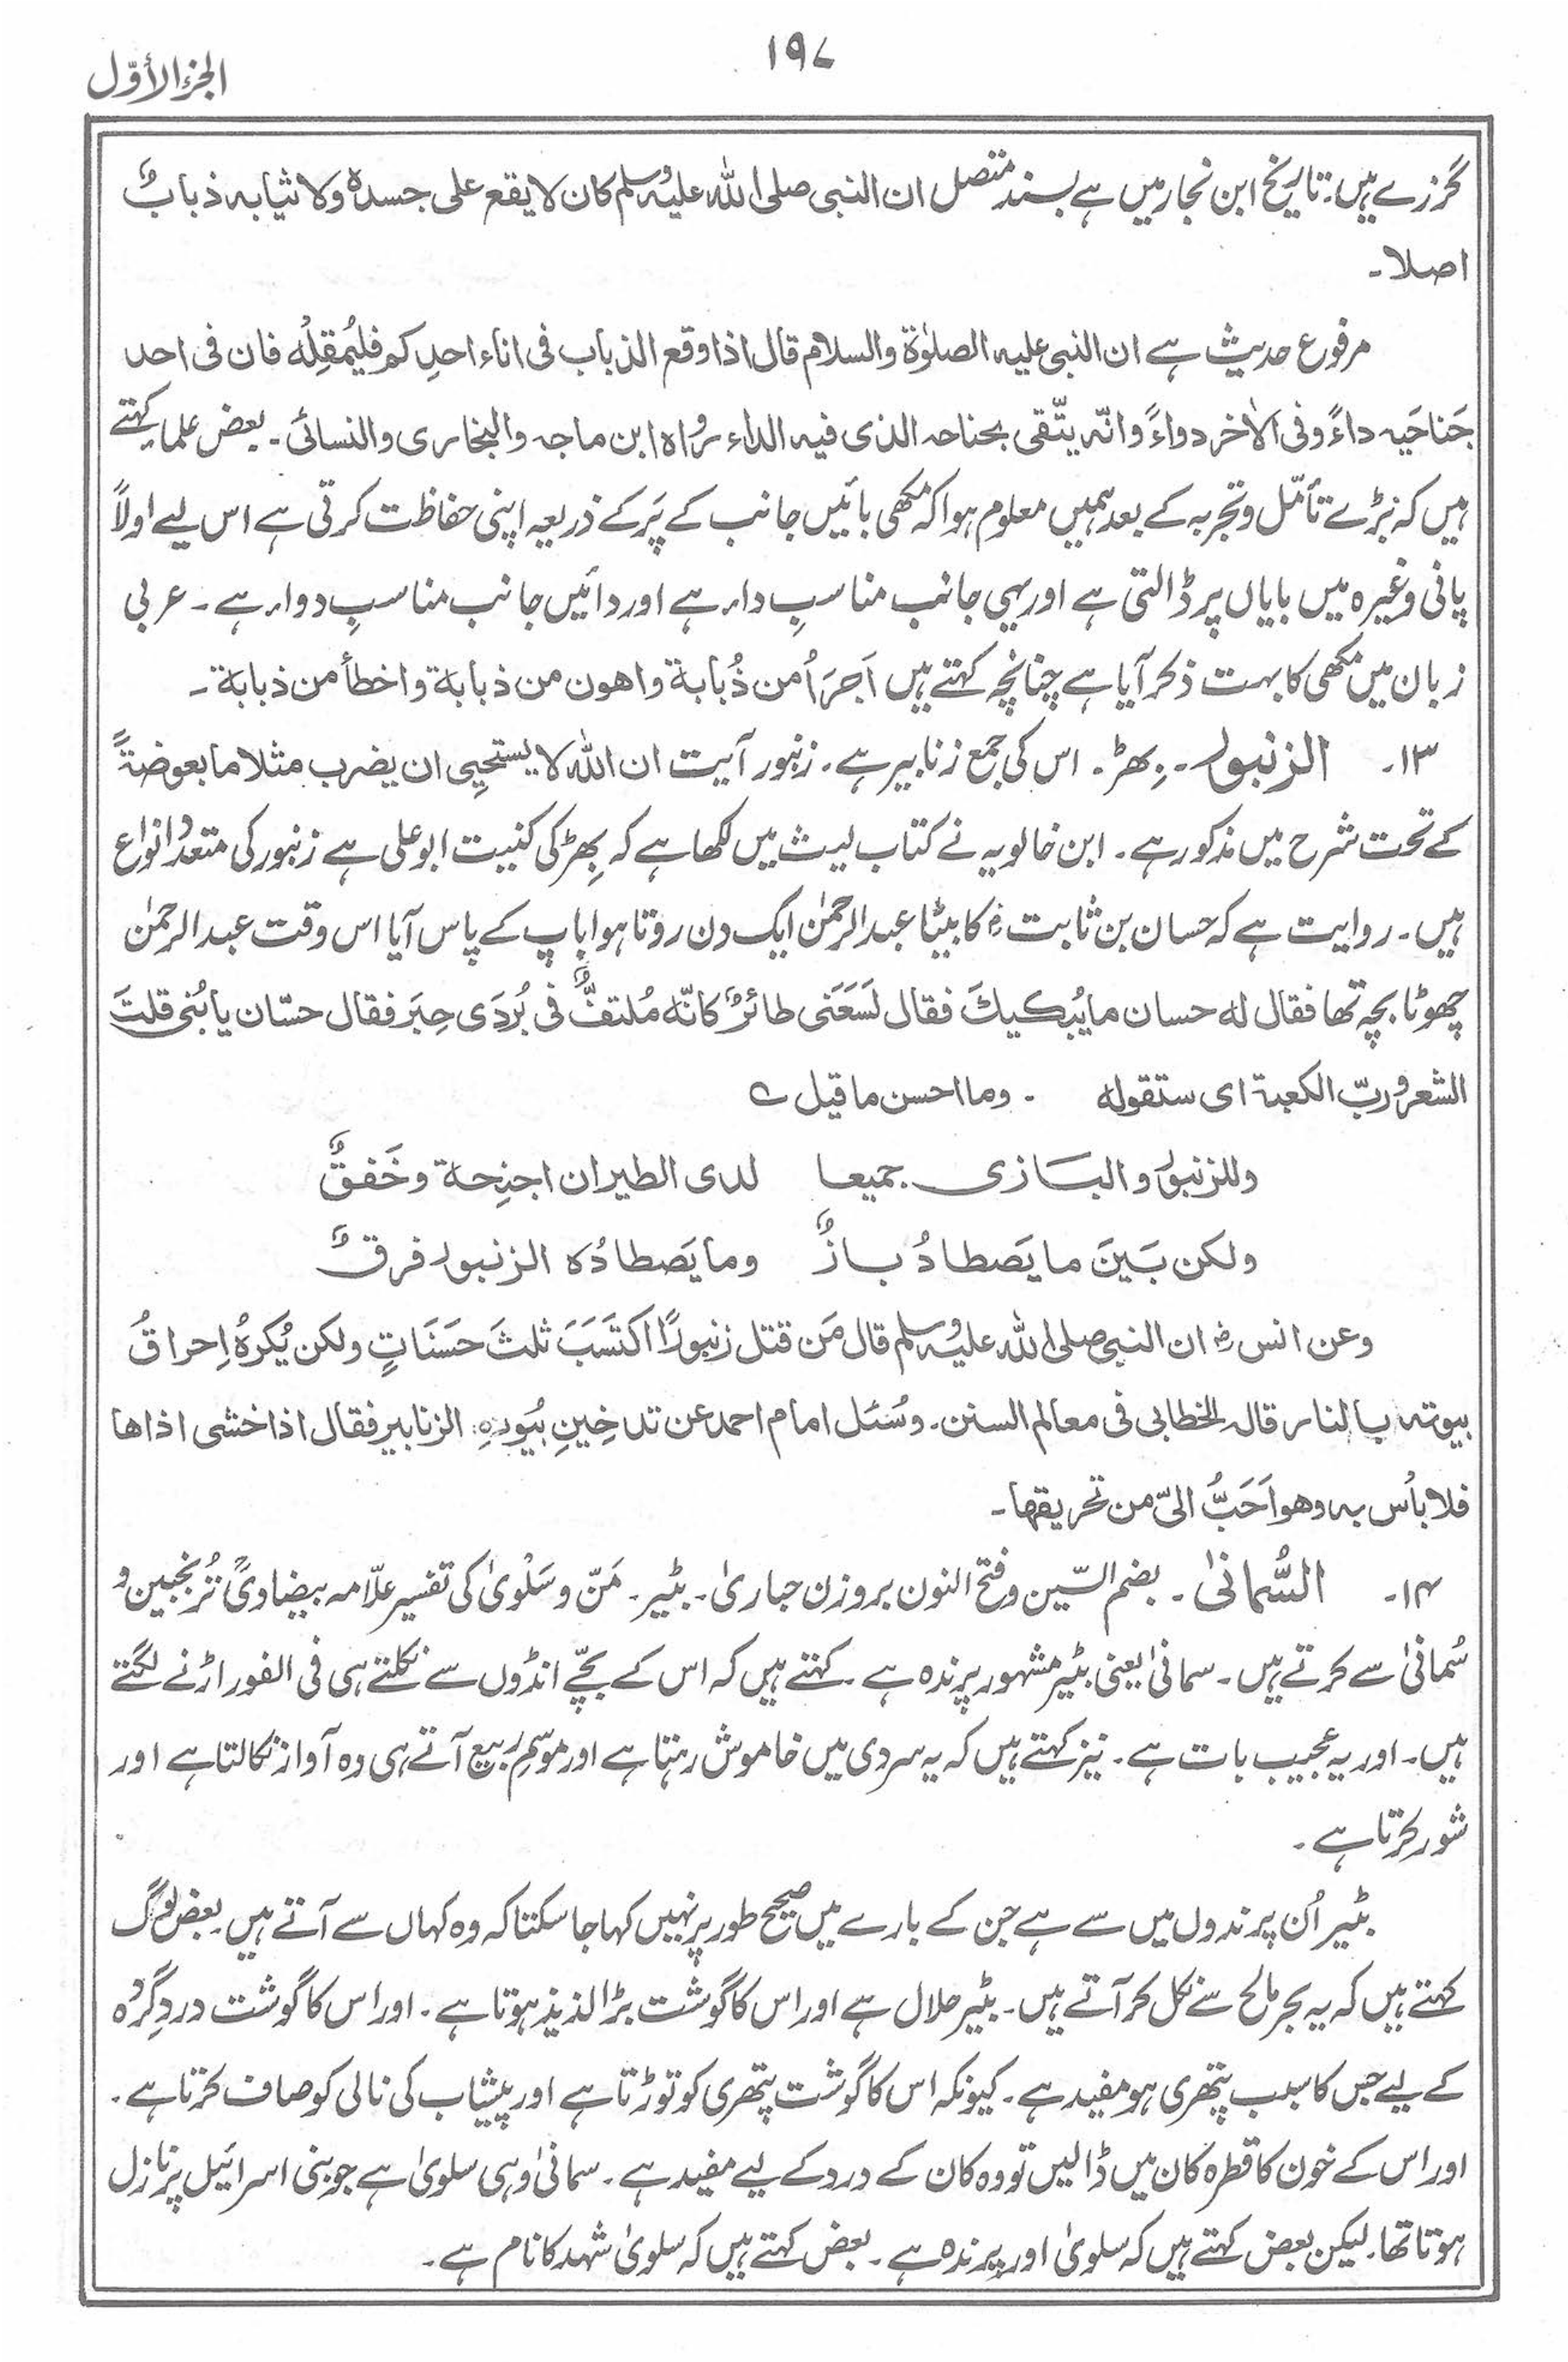 ۱۹۷
الجزء الأوّل
گزرے ہیں۔ تاریخ ابن نجار میں ہے بسند متصل ان النبی صلی اللہ علیہ وسلم کان لا یقع علی جسدہ ولا ثیابہ ذبابٌ
اصلا۔
مرفوع حدیث ہے ان النبی علیہ الصلوٰۃ والسلام قال اذا وقع الذباب فی اناء احدِکم فلیُمقِلْہ فان فی احد
جَناحَیہ داءً وفی الاٰخر دواءً وانّہ یتّقی بجناحہ الذی فیہ الداء رواہ ابن ماجہ والبخاری والنسائی۔ بعض علما کہتے
ہیں کہ بڑے تأمّل و تجربہ کے بعد ہمیں معلوم ہوا کہ مکھی بائیں جانب کے پَر کے ذریعہ اپنی حفاظت کرتی ہے اس لیے اولاً
پانی وغیرہ میں بایاں پر ڈالتی ہے اور یہی جانب مناسبِ داء ہے اور دائیں جانب مناسبِ دواء ہے۔ عربی
زبان میں مکھی کا بہت ذکر آیا ہے چنانچہ کہتے ہیں اَجرَأُ من ذُبابۃ واھون من ذبابۃ واخطأ من ذبابۃ۔
۱۳۔ الزنبور۔ بھڑ۔ اس کی جمع زنابیر ہے۔ زنبور آیت ان اللہ لا یستحیِی ان یضرب مثلا ما بعوضۃً
کے تحت شرح میں مذکور ہے۔ ابن خالویہ نے کتاب لیث میں لکھا ہے کہ بِھڑ کی کنیت ابوعلی ہے زنبور کی متعدد انواع
ہیں۔ روایت ہے کہ حسان بن ثابت رض کا بیٹا عبدالرحمٰن ایک دن روتا ہوا باپ کے پاس آیا اس وقت عبدالرحمٰن
چھوٹا بچہ تھا فقال لہ حسان مایُبکیکَ فقال لَسَعَنی طائرٌ کانّہ مُلتفٌّ فی بُردَی حِبَر فقال حسّان یا بُنی قلتَ
الشعر وربّ الکعبۃ ای ستقولہ ۔ وما احسن ما قیل ؎
وللزنبور والبازی جمیعا لدی الطیران اجنِحۃ وخَفقٌ
ولکن بَینَ ما یَصطادُ بازٌ وما یَصطادُہ الزنبور فرقٌ
وعن انس رض ان النبی صلی اللہ علیہ وسلم قال مَن قتل زنبورًا اکتَسَبَ ثلثَ حَسَنَاتٍ ولکن یُکرہُ اِحراقُ
بیوتہ بالنار قالہ الخطابی فی معالم السنن۔ وسُئل امام احمد عن تدخِینِ بُیوتِ الزنابیر فقال اذا خشی اذاھا
فلا بأس بہ وھو اَحَبُّ الیّ من تحریقھا۔
۱۴۔ السُّمانیٰ۔ بضم السّین وفتح النون بروزن حباریٰ۔ بٹیر۔ مَنّ وسَلْویٰ کی تفسیر علّامہ بیضاویؒ تُرنجبین و
سُمانیٰ سے کرتے ہیں۔ سمانیٰ یعنی بٹیر مشہور پرندہ ہے۔ کہتے ہیں کہ اس کے بچّے انڈوں سے نکلتے ہی فی الفور اڑنے لگتے
ہیں۔ اور یہ عجیب بات ہے۔ نیز کہتے ہیں کہ یہ سردی میں خاموش رہتا ہے اور موسمِ ربیع آتے ہی وہ آواز نکالتا ہے اور
شور کرتا ہے۔
بٹیر اُن پرندوں میں سے ہے جن کے بارے میں صحیح طور پر نہیں کہا جا سکتا کہ وہ کہاں سے آتے ہیں۔ بعض لوگ
کہتے ہیں کہ یہ بحرِ مالح سے نکل کر آتے ہیں۔ بٹیر حلال ہے اور اس کا گوشت بڑا لذیذ ہوتا ہے۔ اور اس کا گوشت دردِ گُردہ
کے لیے جس کا سبب پتھری ہو مفید ہے۔ کیونکہ اس کا گوشت پتھری کو توڑتا ہے اور پیشاب کی نالی کو صاف کرتا ہے۔
اور اس کے خون کا قطرہ کان میں ڈالیں تو وہ کان کے درد کے لیے مفید ہے۔ سمانیٰ وہی سلویٰ ہے جو بنی اسرائیل پر نازل
ہوتا تھا۔ لیکن بعض کہتے ہیں کہ سلویٰ اور پرندہ ہے۔ بعض کہتے ہیں کہ سلویٰ شہد کا نام ہے۔